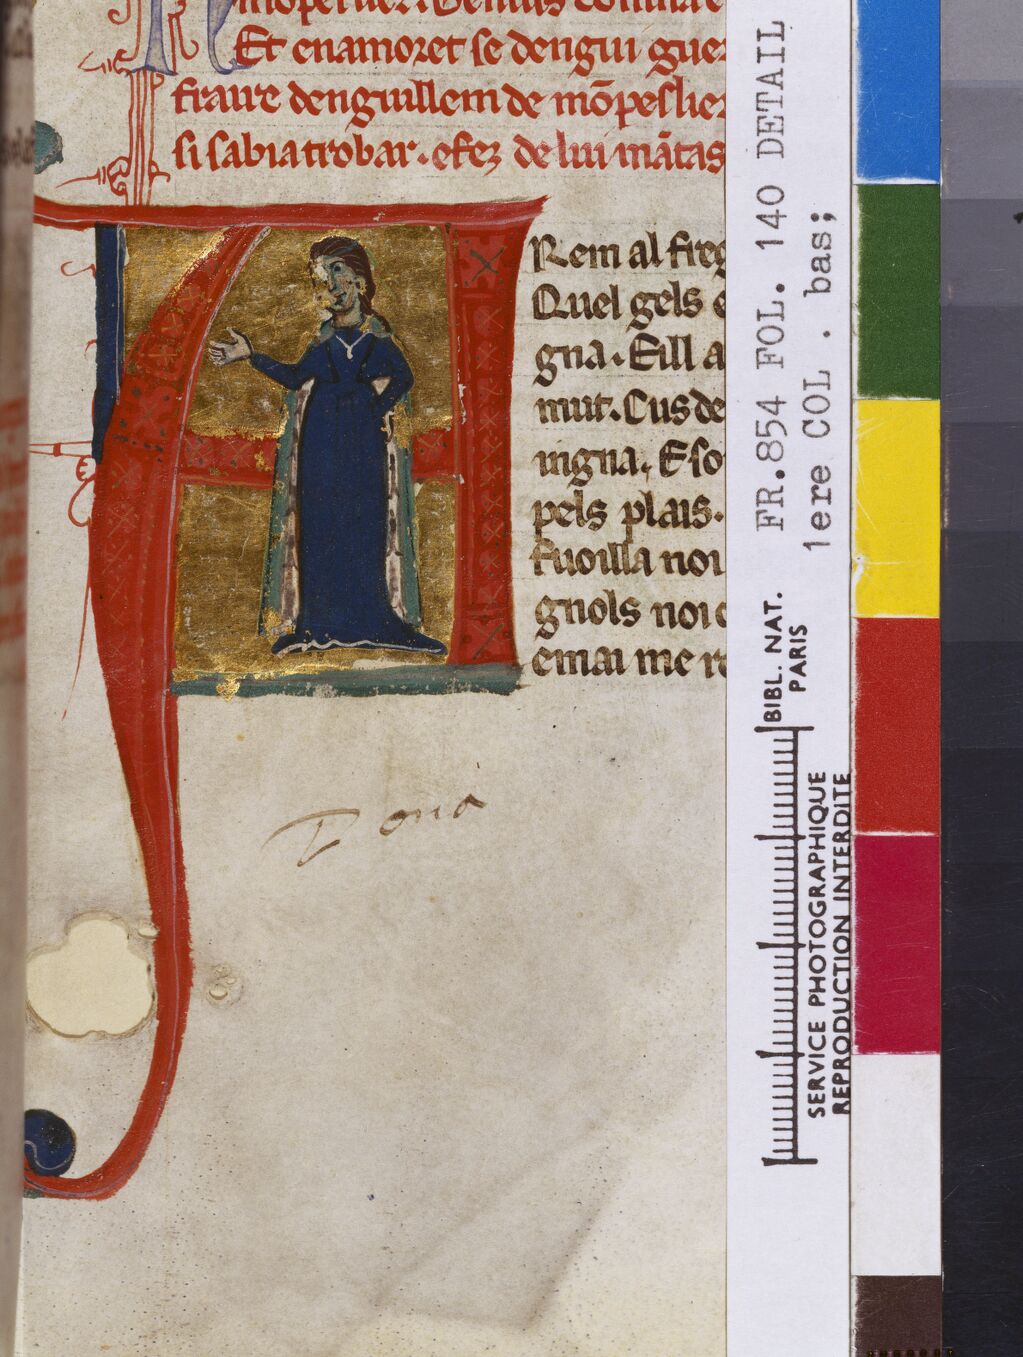 Et enamoret se dengui gue
fraire denguillem de mõpeslier
si sabia trobar. efez de lui mãtas
Rem al freg
Quel gels e
gna. Eill a
mut. Cus de
ingna. E so
pels plais.
fuoilla noi
gnols noi c
emai me re
Dona
FR.854 FOL. 140 DETAIL
1ere COL . bas;
BIBL. NAT.
PARIS
SERVICE PHOTOGRAPHIQUE
REPRODUCTION INTERDITE